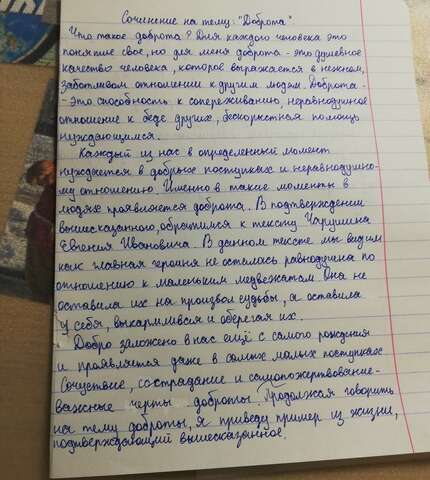 Сочинение на тему: "Доброта"
Что такое доброта? Для каждого человека это
понятие своё, но для меня доброта - это душевное
качество человека, которое выражается в нежном,
заботливом отношении к другим людям. Доброта -
- это способность к сопереживанию, неравнодушное
отношение к беде других, бескорыстная помощь
нуждающимся.
Каждый из нас в определенный момент
нуждается в добрых поступках и неравнодушно-
му отношению. Именно в такие моменты в
людях проявляется доброта. В подтверждении
вышесказанного, обратимся к тексту Чарушина
Евгения Ивановича. В данном тексте мы видим
как главная героиня не осталась равнодушна по
отношению к маленьким медвежатам. Она не
оставила их на произвол судьбы, а оставила
у себя, выкармливая и оберегая их.
Добро заложено в нас ещё с самого рождения
и проявляется даже в самых малых поступках
Сочуствие, со-страдание и самопожертвование-
важные черты доброты. Продолжая говорить
на тему доброты, я приведу пример из жизни,
подтверждающий вышесказанное.